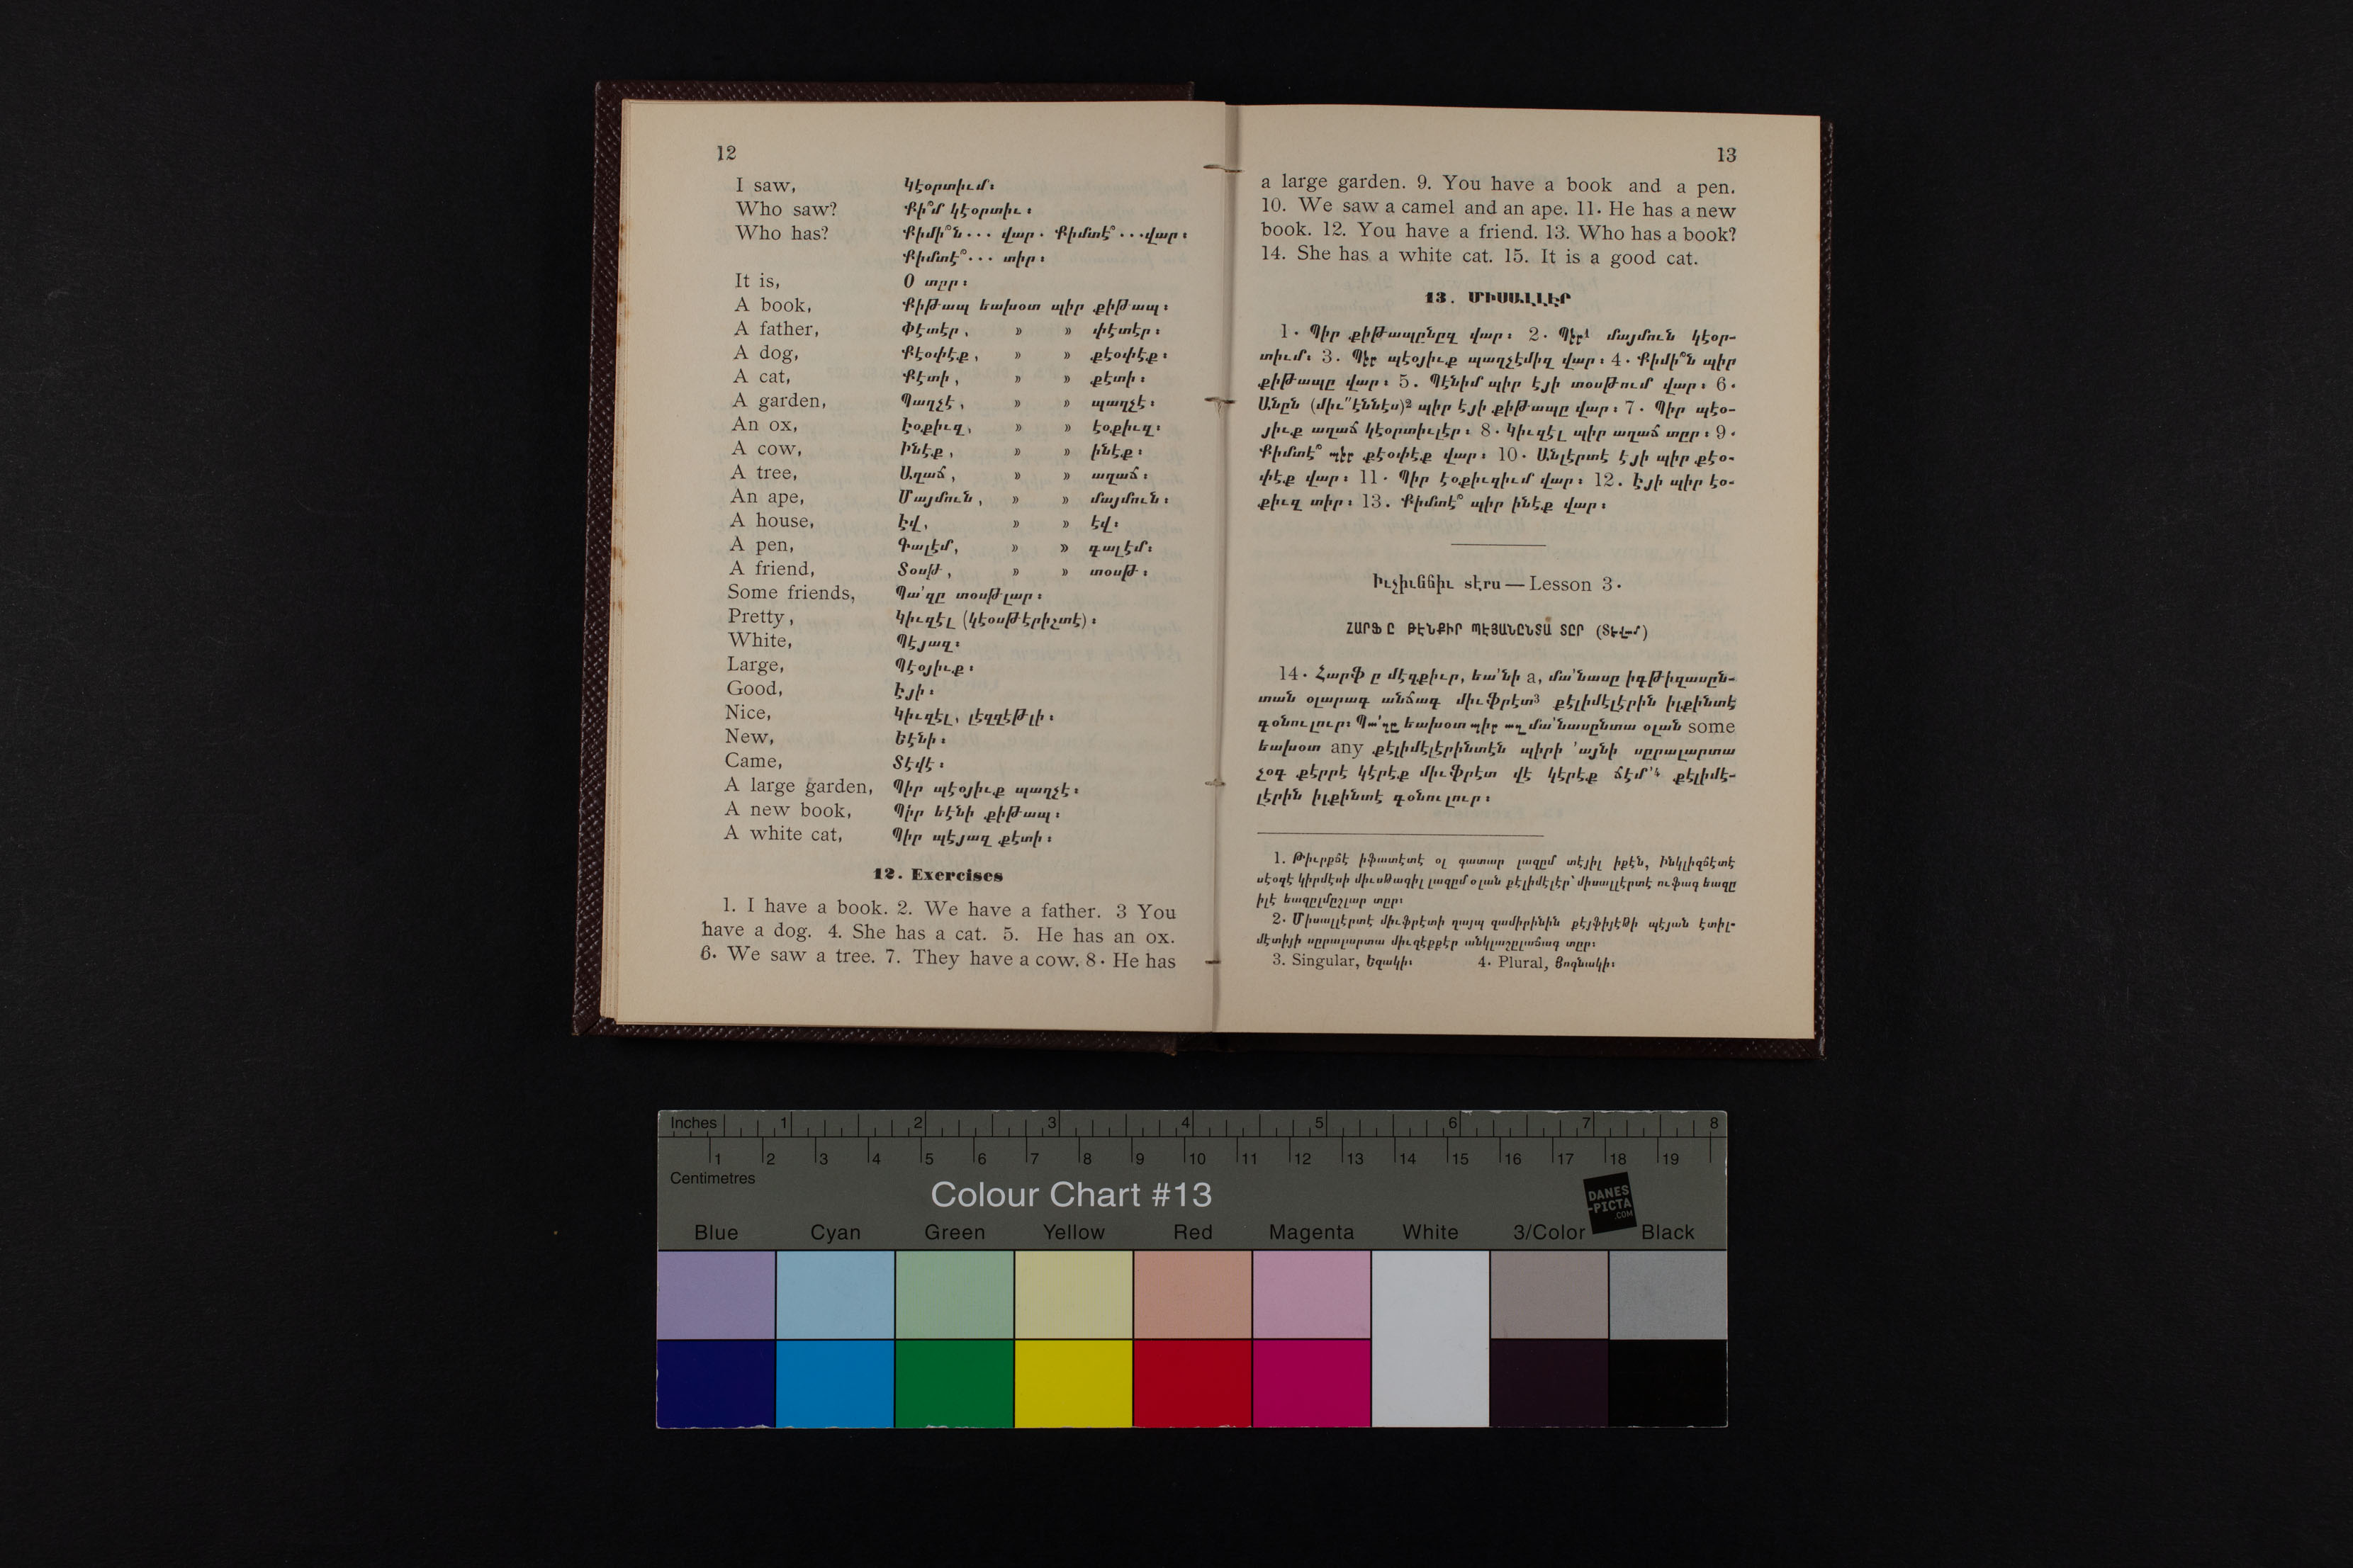 12
I saw, Կէօրտիւմ։
Who saw? Քի՞մ կէօրտիւ։
Who has? Քիմի՞ն... վար. Քիմտէ՞...վար։
Քիմտէ՞... տիր։
It is, Օ տըր։
A book, Քիթապ եախօտ պիր քիթապ։
A father, Փէտէր, » » փէտէր։
A dog, Քէօփէք, » » քէօփէք։
A cat, Քէտի, » » քէտի։
A garden, Պաղչէ, » » պաղչէ։
An ox, Էօքիւզ, » » էօքիւզ։
A cow, Ինէք, » » ինէք։
A tree, Աղաճ, » » աղաճ։
An ape, Մայմուն, » » մայմուն։
A house, Էվ, » » էվ։
A pen, Գալէմ, » » գալէմ։
A friend, Տօսթ, » » տօսթ։
Some friends, Պա՛զը տօսթլար։
Pretty, Կիւզէլ (կէօսթէրիշտէ)։
White, Պէյազ։
Large, Պէօյիւք։
Good, Էյի։
Nice, Կիւզէլ, լէզզէթլի։
New, Եէնի։
Came, Տէվէ։
A large garden, Պիր պէօյիւք պաղչէ։
A new book, Պիր եէնի քիթապ։
A white cat, Պիր պէյազ քէտի։
12. Exercises
1. I have a book. 2. We have a father. 3 You
have a dog. 4. She has a cat. 5. He has an ox.
6. We saw a tree. 7. They have a cow. 8. He has
13
a large garden. 9. You have a book and a pen.
10. We saw a camel and an ape. 11. He has a new
book. 12. You have a friend. 13. Who has a book?
14. She has a white cat. 15. It is a good cat.
13. ՄԻՍԱԼԼԷՐ
1. Պիր քիթապընըզ վար։ 2. Պիր1 մայմուն կէօր-
տիւմ։ 3. Պիր պէօյիւք պաղչէմիզ վար։ 4. Քիմի՞ն պիր
քիթապը վար։ 5. Պէնիմ պիր էյի տօսթում վար։ 6.
Անըն (միւ՛՛էննէս)2 պիր էյի քիթապը վար։ 7. Պիր պէօ-
յիւք աղաճ կէօրտիւլէր։ 8. Կիւզէլ պիր աղաճ տըր։ 9.
Քիմտէ՞ պիր քէօփէք վար։ 10. Անլէրտէ էյի պիր քէօ-
փէք վար։ 11. Պիր էօքիւզիւմ վար։ 12. Էյի պիր էօ-
քիւզ տիր։ 13. Քիմտէ՞ պիր ինէք վար։
Իւչիւննիւ տէրս — Lesson 3.
ՀԱՐՖ Ը ԹԷՆՔԻՐ ՊԷՅԱՆԸՆՏԱ ՏԸՐ (Տէվամ)
14. Հարֆ ը մէզքիւր, եա՛նի a, մա՛նասը իգթիզասըն-
տան օլարագ անճագ միւֆրէտ3 քէլիմէլէրին իլքինտէ
գօնուլուր։ Պա՛զը եախօտ պիր ազ մա՛նասընտա օլան some
եախօտ any քէլիմէլէրինտէն պիրի ՛այնի սըրալարտա
չօգ քէրրէ կէրէք միւֆրէտ վէ կէրէք ճէմ՛4 քէլիմէ-
լէրին իլքինտէ գօնուլուր։
1. Թիւրքճէ իֆատէտէ օլ գատար լազըմ տէյիլ իքէն, Ինկլիզճէտէ
սէօզէ կիրմէսի միւսթագիլ լազըմ օլան քէլիմէլէր՝ միսալլէրտէ ուֆագ եազը
իլէ եազըլմըշլար տըր։
2. Միսալլէրտէ միւֆրէտի ղայպ զամիրինին քէյֆիյէթի պէյան էտիլ-
մէտիյի սըրալարտա միւզէքքէր անկլաշըլաճագ տըր։
3. Singular, Եզակի։ 4. Plural, Յոգնակի։
Inches 1 2 3 4 5 6 7 8
1 2 3 4 5 6 7 8 9 10 11 12 13 14 15 16 17 18 19
Centimetres
Colour Chart #13
DANES
-PICTA
.COM
Blue Cyan Green Yellow Red Magenta White 3/Color Black